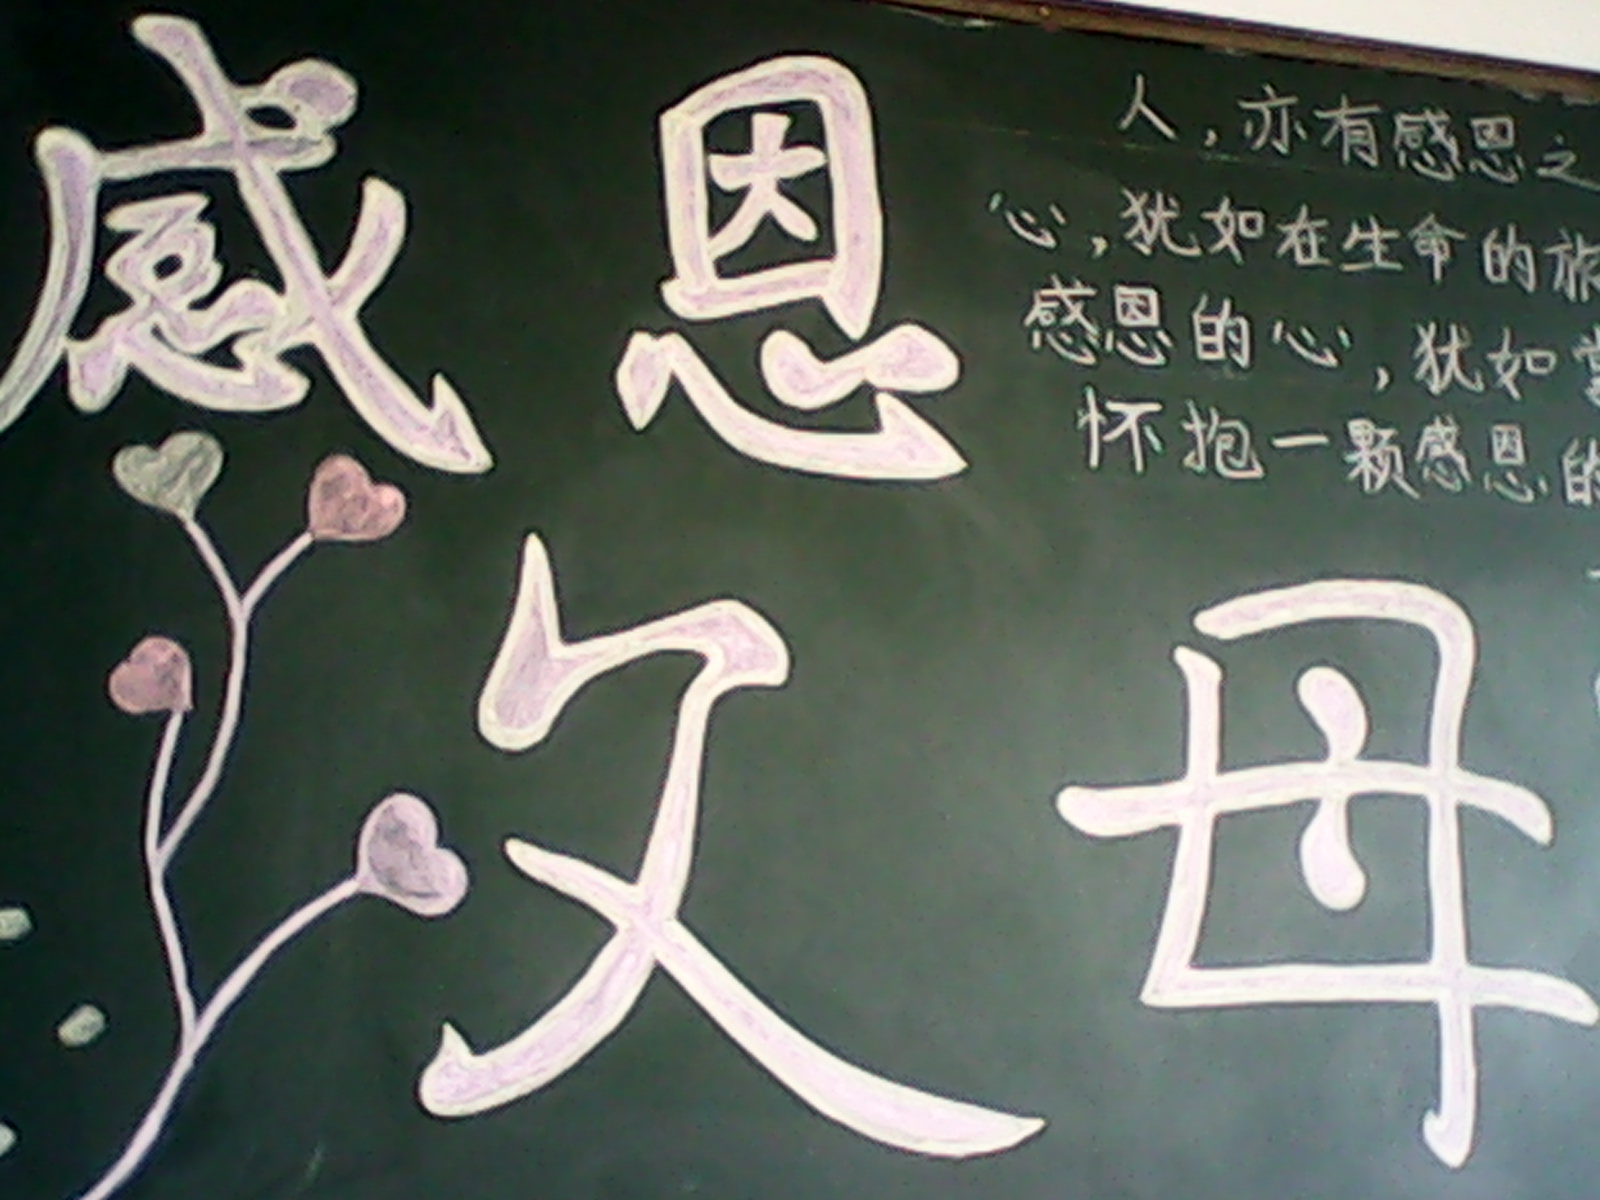 感恩
父母
人，亦有感恩之
心，犹如在生命的旅
感恩的心，犹如掌
怀抱一颗感恩的